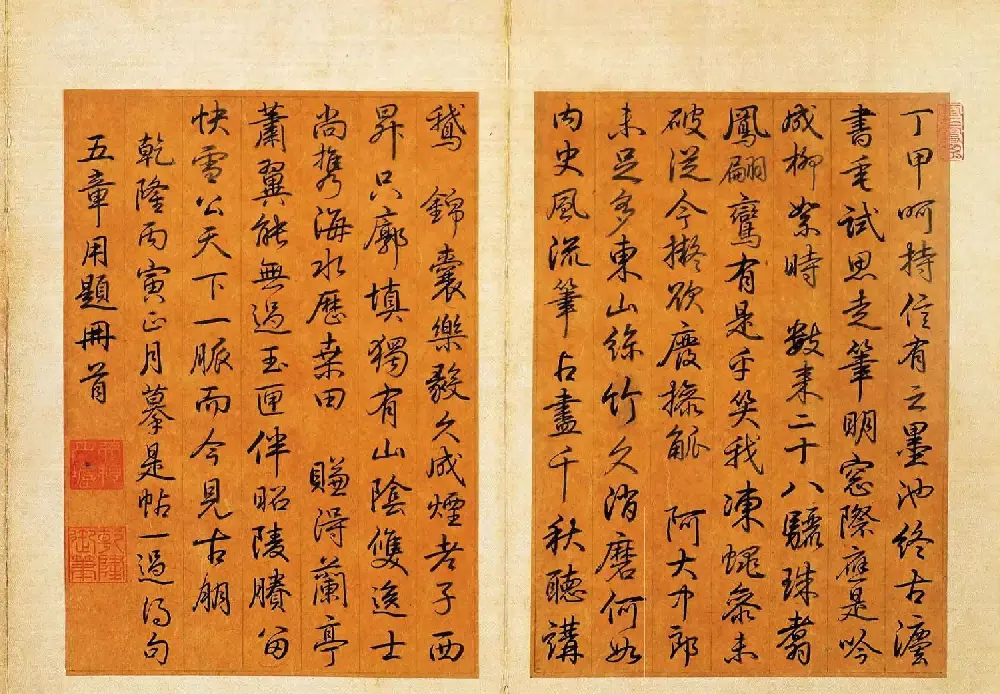 丁甲呵持信有之墨池終古灋
書垂試思走筆明窓際應是吟
成柳絮時 數來二十八驪珠翥
鳳翩鸞有是乎笑我凍蠅參未
破從今擬欲廢操觚 阿大中郎
未足多東山絲竹久消磨何如
內史風流筆占盡千秋聽講
鵝 錦囊樂毅久成煙老子西
昇只廓填獨有山陰雙逸士
尚攜海水歷桑田 賺得蘭亭
蕭翼能無過玉匣伴昭陵賸留
快雪公天下一脈而今見古朋
乾隆丙寅正月摹是帖一過得句
五章用題冊首
乾隆御筆